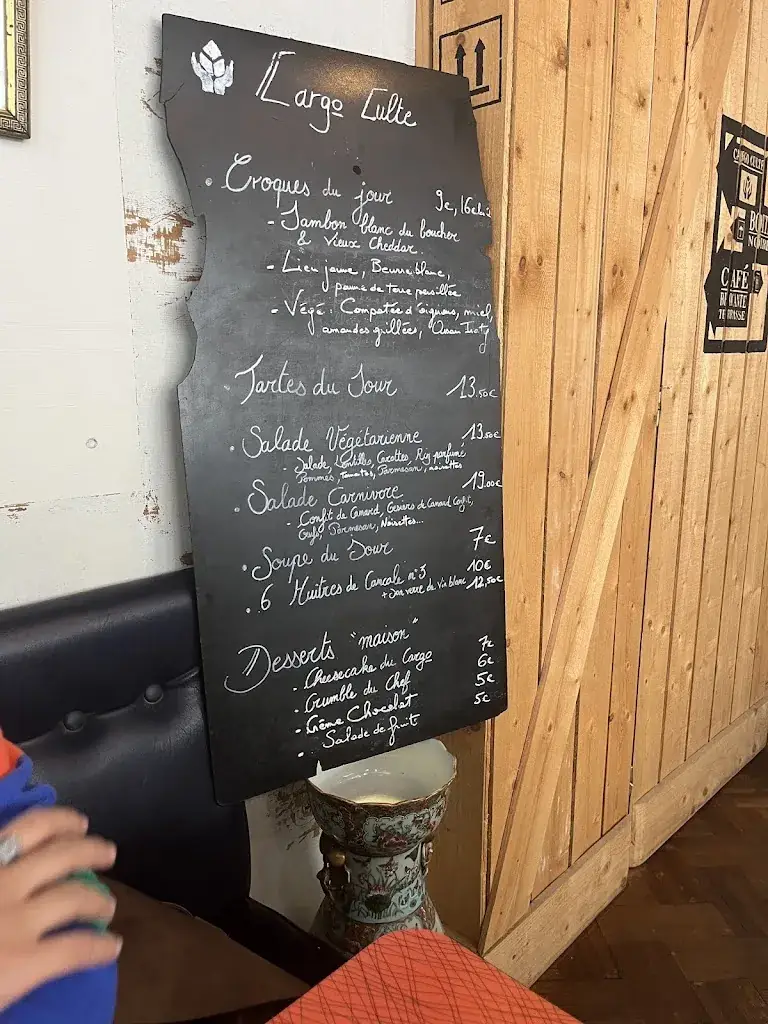 Cargo Culte
Croques du jour 9€, 16€
- Jambon blanc du boucher
& Vieux Cheddar.
- Lieu jaune, Beurre blanc,
pomme de terre persillée
- Végé : Compotée d'oignons, miel,
amandes grillées,
Tartes du Jour 13.50€
Salade Végétarienne 13.50€
- Salade, Lentilles, Carottes, Riz parfumé
Pommes, tomates, Parmesan, noisettes
Salade Carnivore 19.00€
- Confit de Canard, Gésiers de Canard Confit,
Oeufs, Parmesan, Noisettes...
Soupe du Jour 7€
6 Huitres de Cancale n°3 10€
+ Son verre de Vin blanc 12,50€
Desserts "maison"
- Cheesecake du Cargo 7€
- Crumble du Chef 6€
- Crème Chocolat 5€
- Salade de fruit 5€
CARGO CULTE
CAFÉ
BROCANTE
TERRASSE